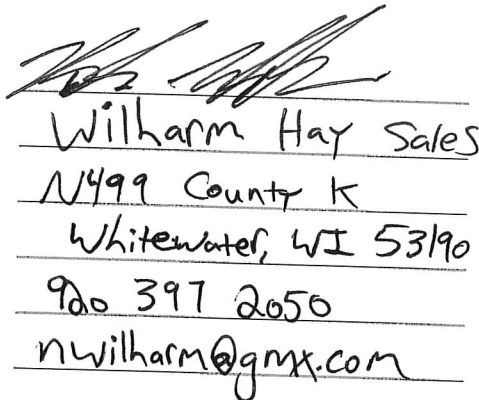 Wilharm Hay Sales
N499 County K
Whitewater, WI 53190
920 397 2050
nwilharm@gmx.com